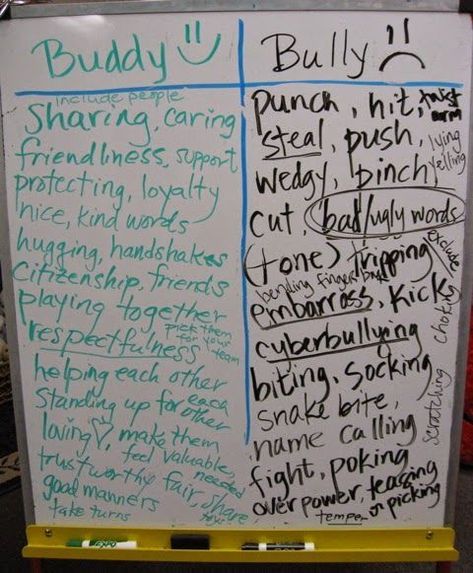 Buddy
include people
sharing, caring
friendliness, support
protecting, loyalty
nice, kind words
hugging, handshakes
citizenship, friends
playing together
respectfulness
pick them
for your
team
helping each other
standing up for each
other
loving, make them
feel valuable,
needed
trustworthy fair, share
toys
good manners
take turns
Bully
punch, hit, twist
arm
steal, push,
lying
yelling
wedgy, pinch,
cut, bad/ugly words
(tone) tripping
exclude
bending fingers back
embarrass, kick
choking
cyberbullying
biting, socking
scratching
snake bite,
name calling
fight, poking
over power, teasing
temper or picking
EXPO